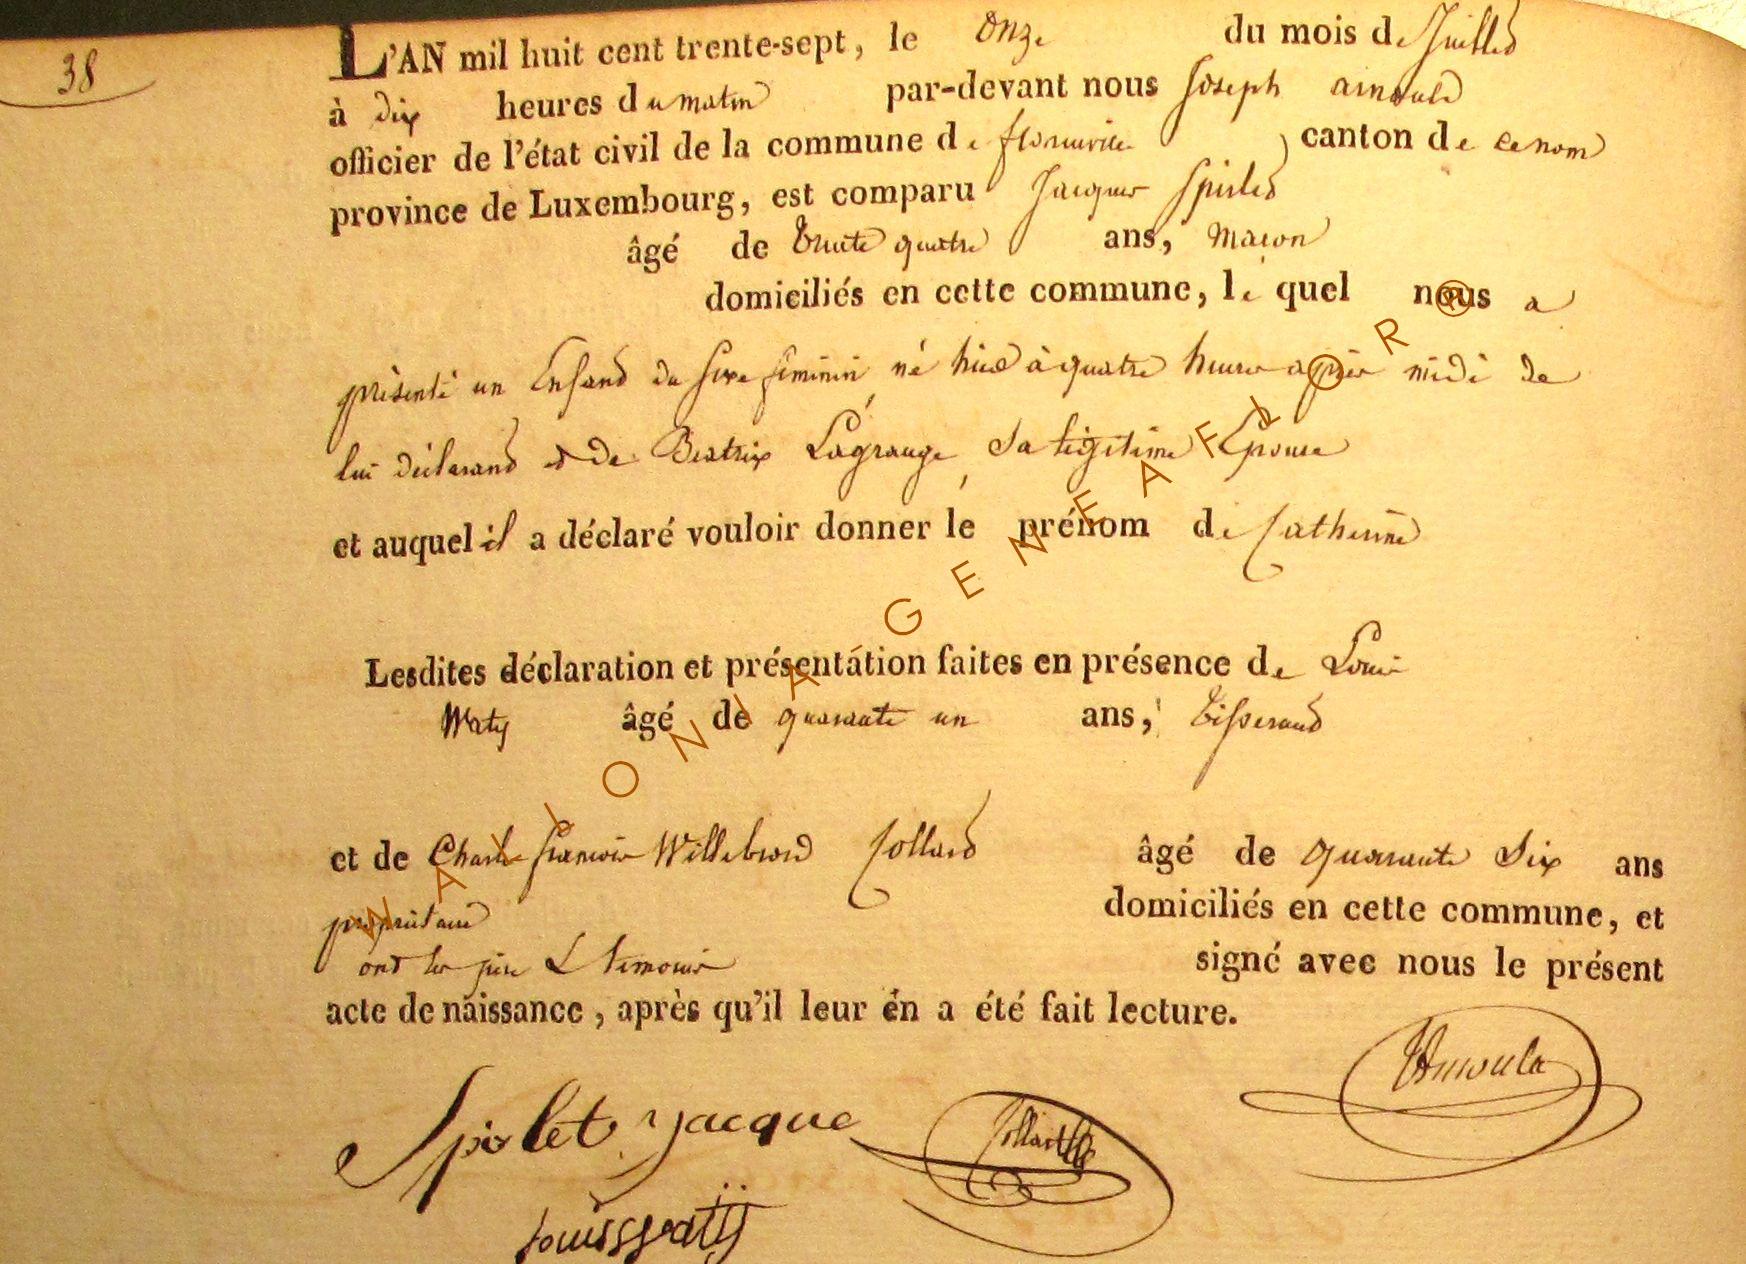 38
L'AN mil huit cent trente-sept, le onze du mois de Juillet
à dix heures du matin par-devant nous Joseph arnould
officier de l'état civil de la commune de florenville canton de ce nom
province de Luxembourg, est comparu Jacques Spirlet
âgé de trente quatre ans, maçon
domiciliés en cette commune, le quel nous a
présenté un Enfant du sexe féminin, né hier à quatre heures après midi de
lui déclarant et de Beatrix Lagrange, sa légitime Epouse
et auquel il a déclaré vouloir donner le prénom de Catherine
Lesdites déclaration et présentation faites en présence de Louis
Waty âgé de quarante un ans, tisserand
et de Charles françois Willebrord Collard âgé de quarante six ans
propriétaire domiciliés en cette commune, et
ont les père & témoins signé avec nous le présent
acte de naissance, après qu'il leur en a été fait lecture.
Spirlet Jacque
Collard
Arnould
Louis Watÿ
NATIONNIA GENEAFLOR ®